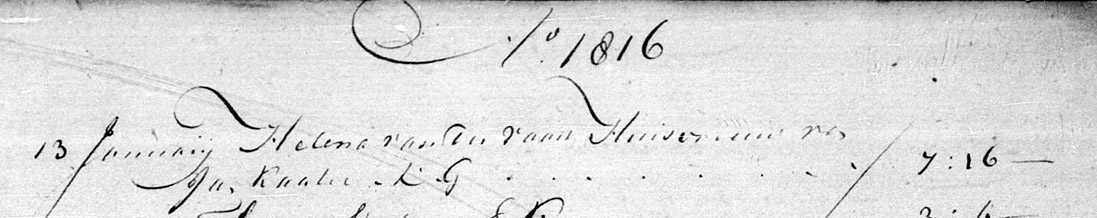 Ao 1816
13 January Helena van der vaan Huisvrouw van
Jan Kaater K G . . . . . . . / 7:16 —